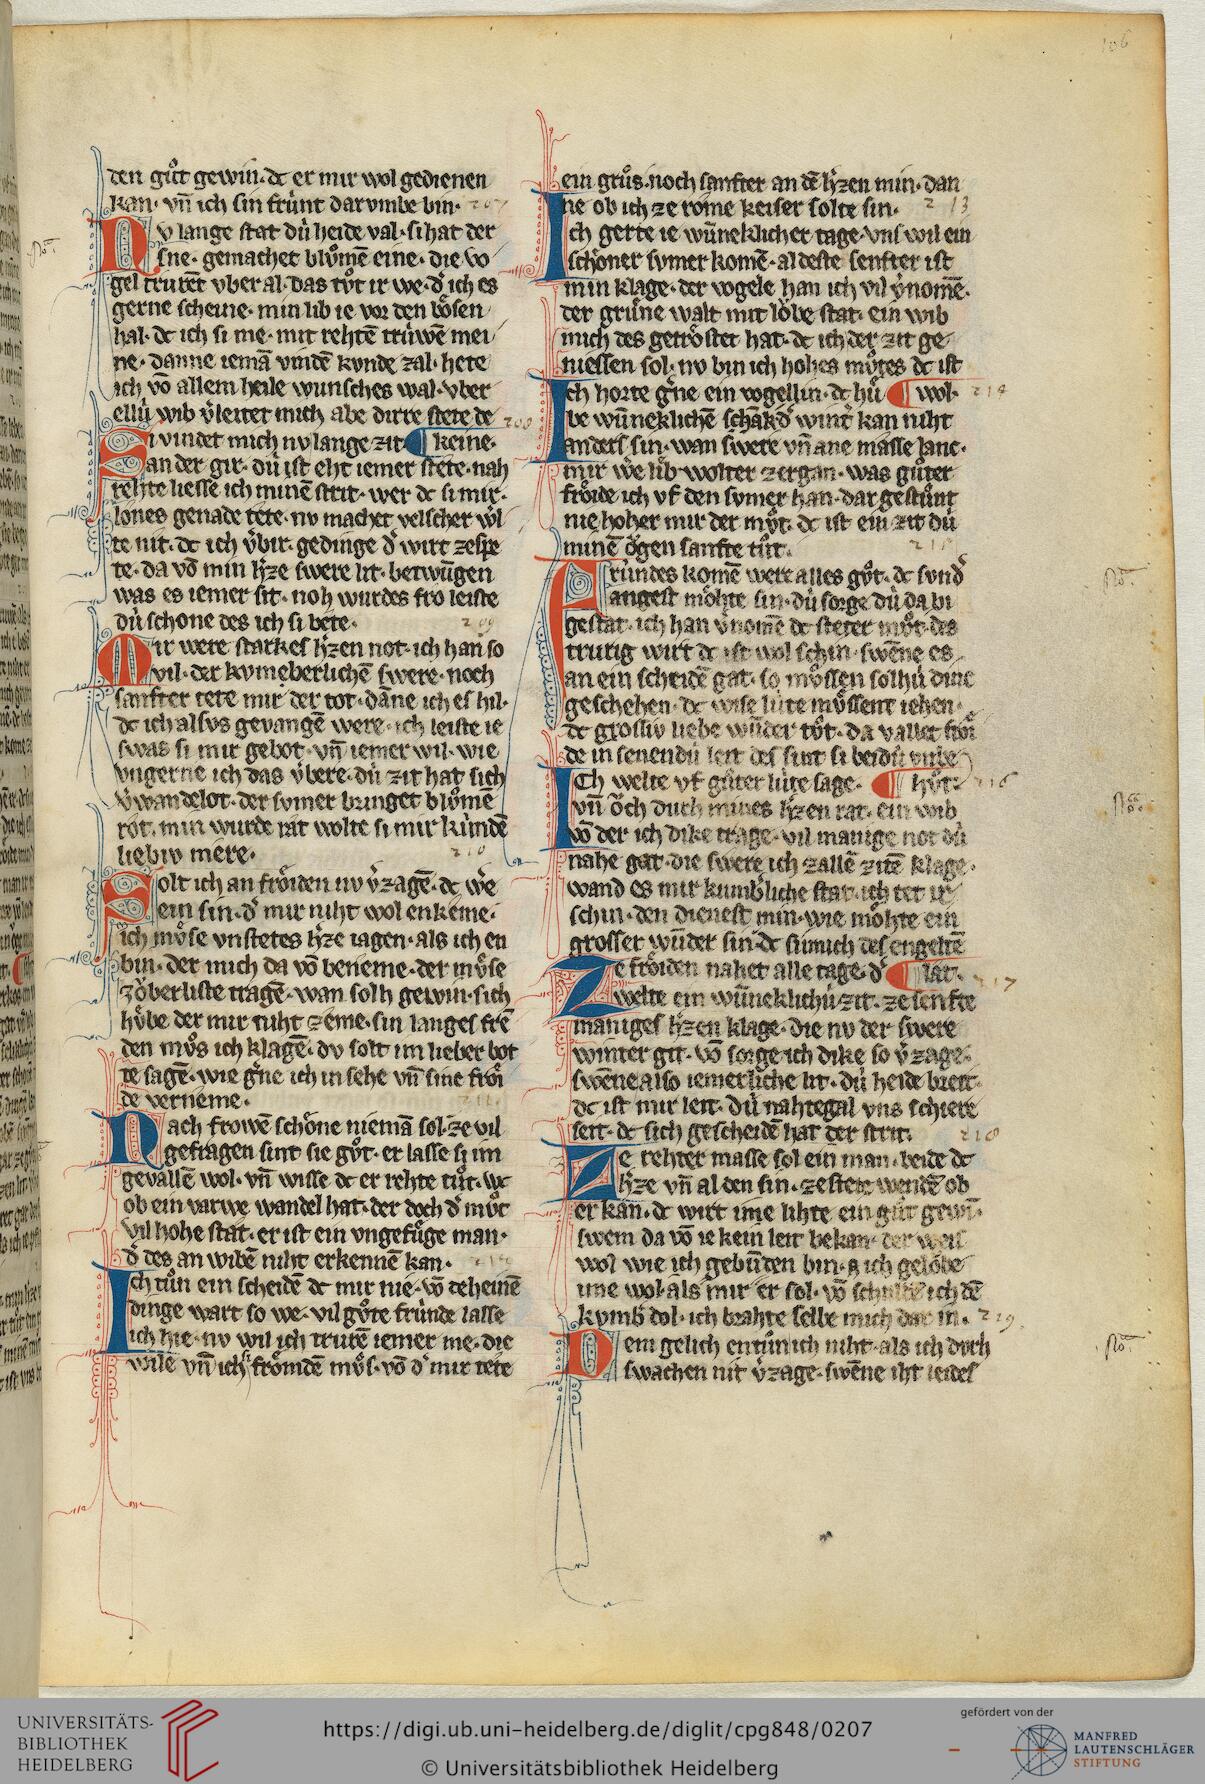 106
den guͦt gewin· dc er mir wol gedienen
kan· vn̄ ich sin frúnt dar vmbe bin· 207
Nv lange stat dú heide val· si hat der
sne· gemachet bluͦmē eine· die vo
gel trurēt vber al· das tuͦt ir we· d͛ ich es
gerne scheine· min lib ie vor den boͤsen
hal· dc ich si me· mit rehtē trúwē mei
ne· danne iemā vindē kvnde zal· hete
ich vō allem heile wunsches wal· vber
ellú wib v͛leitet mich abe dirre stete de
Si vindet mich nv lange zit ¶ keine·
an der gir· dú ist eht iemer stete· nah
rehte liesse ich minē strit· wer dc si mir·
lones genade tete· nv machet velscher wi͛
te nit· dc ich v͛bir· gedinge d͛ wirt zespe
te· da vō min h͛ze swere lit· betwūgen
was es iemer sit· noh wurdes fro leiste
dú schone des ich si bete· 209
Mir were starkes h͛zen not· ich han so
vil· der kvmeberlichē swere· noch
sanfter tete mir der tot· dāne ich es hil·
dc ich alsvs gevangē were· ich leiste ie
swas si mir gebot· vn̄ iemer wil· wie
vngerne ich das v͛bere· dú zit hat sich
v͛wandelot· der svmer bringet bluͦmē
rot· min wurde rat wolte si mir kúndē
liebiv mere· 210
Solt ich an froͤiden nv v͛zagē· dc we͛
ein sin· d͛ mir niht wol enkeme·
ich mvͤse vnstetes h͛ze iagen· als ich en
bin· der mich da vō beneme· der mvͤse
zoͮberliste tragē· wan solh gewin· sich
hvͤbe der mir niht zeme· sin langes frē
den mvͦs ich klagē· dv solt im lieber bot
te sagē· wie g͛ne ich in sehe vn̄ sine froͤi
de verneme· 211
Nach frowē schoͤne niemā sol· ze vil
gefragen sint sie guͦt· er lasse si im
gevallē wol· vn̄ wisse dc er rehte tuͦt· wc
ob ein varwe wandel hat· der doch d͛ mvͦt
vil hohe stat· er ist ein vngefuͤge man·
d͛ des an wibē niht erkennē kan·
Ich tuͦn ein scheidē dc mir nie· vō deheinē
dinge wart so we· vil guͦte frúnde lasse
ich hie· nv wil ich trurē iemer me· die
wile vn̄ ich si froͤmdē mvͦs· vō d͛ mir tete
ein gruͦs· noch sanfter an dē h͛zen min· dan
ne ob ich ze rome keiser solte sin· 213
Ich gerte ie wūneklicher tage· vns wil ein
schoͤner svmer komē· al deste senfter ist
min klage· der vogele han ich vil v͛nomē·
der gruͤne walt mit loͮbe stat· ein wib
mich des getroͤstet hat· dc ich der zit ge
niessen sol· nv bin ich hohes mvͦtes dc ist
Ich horte g͛ne ein vogellin· dc huͤ ¶ wol· 214
be wūneklichē schāk d͛ wint͛ kan niht
anders sin· wan swere vn̄ ane masse lanc·
mir we͛ lib· wolter zergan· was guͦter
froͤide ich vf den svmer han· dar gestuͦnt
nie hoher mir der mvͦt· dc ist ein zit dú
minē oͮgen sanfte tuͦt· 215
Frúndes komē were alles guͦt· dc svnd͛
angest moͤhte sin· dú sorge dú da bi
gestat· ich han v͛nomē dc steter mvͦt· des
trurig wirt dc ist wol schin· swēne es
an ein scheidē gat· so mvͤssen solhú dinc
geschehen· dc wise lúte mvͤssent iehen·
dc grossiv liebe wūder tuͦt· da vallet froͤi
de in senendú leit des sint si beidú vnbe
Ich welte vf guͦter lúte sage· ¶ hvͦt· 216
vn̄ oͮch durh mines h͛zen rat· ein wib
vō der ich dike trage· vil manige not dú
nahe gat· die swere ich zallē zitē klage·
wand es mir kumb͛liche stat· ich tet ir
schin· den dienest min· wie moͤhte ein
grosser wūder sin· dc si mich des engeltē
Ze froͤiden nahet alle tage· d͛ ¶ lat· 217
welte ein wūneklichú zit· ze senfte
maniges h͛zen klage· die nv der swere
winter git· vō sorge ich dike so v͛zage·
swēne also iemerliche lit· dú heide breit·
dc ist mir leit· dú nahtegal vns schiere
seit· dc sich gescheidē hat der strit· 218
Ze rehter masse sol ein man· beide dc
h͛ze vn̄ al den sin· ze stete wendē ob
er kan· dc wirt ime lihte ein guͦt gewī·
swem da vō ie kein leit bekan· der weis
wol wie ich gebūden bin· a ich geloͮbe
ime wol· als mir er sol· vō schulde ich dē
kvmb͛ dol· ich brahte selbe mich dar in· 219
Dem gelich entuͦn ich niht· als ich doch
swachen nit v͛zage· swēne iht leides
UNIVERSITÄTS-
BIBLIOTHEK
HEIDELBERG
https://digi.ub.uni-heidelberg.de/diglit/cpg848/0207
© Universitätsbibliothek Heidelberg
gefördert von der
MANFRED
LAUTENSCHLÄGER
STIFTUNG